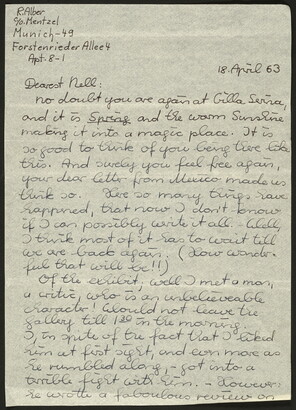 R. Alber
c/o Mentzel
Munich-49
Forstenrieder Allee 4
Apt. 8-1
18. April 63
Dearest Nell:
no doubt you are again at Villa Serina,
and it is Spring and the warm Sunshine
making it into a magic place. It is
so good to think of you being there like
this. And surely you feel free again,
your dear letter from Mexico made us
think so. Here so many things have
happened, that now I don't know
if I can possibly write it all. Well,
I think most of it has to wait till
we are back again. (How wonder-
ful that will be!!)
Of the exhibit, well I met a man,
a critic, who is an unbelieveable
character! Would not leave the
gallery till 1:30 in the morning.
I, in spite of the fact that I liked
him at first sight, and even more as
he rumbled along, - got into a
terrible fight with him. - However
he wrote a faboulous review on